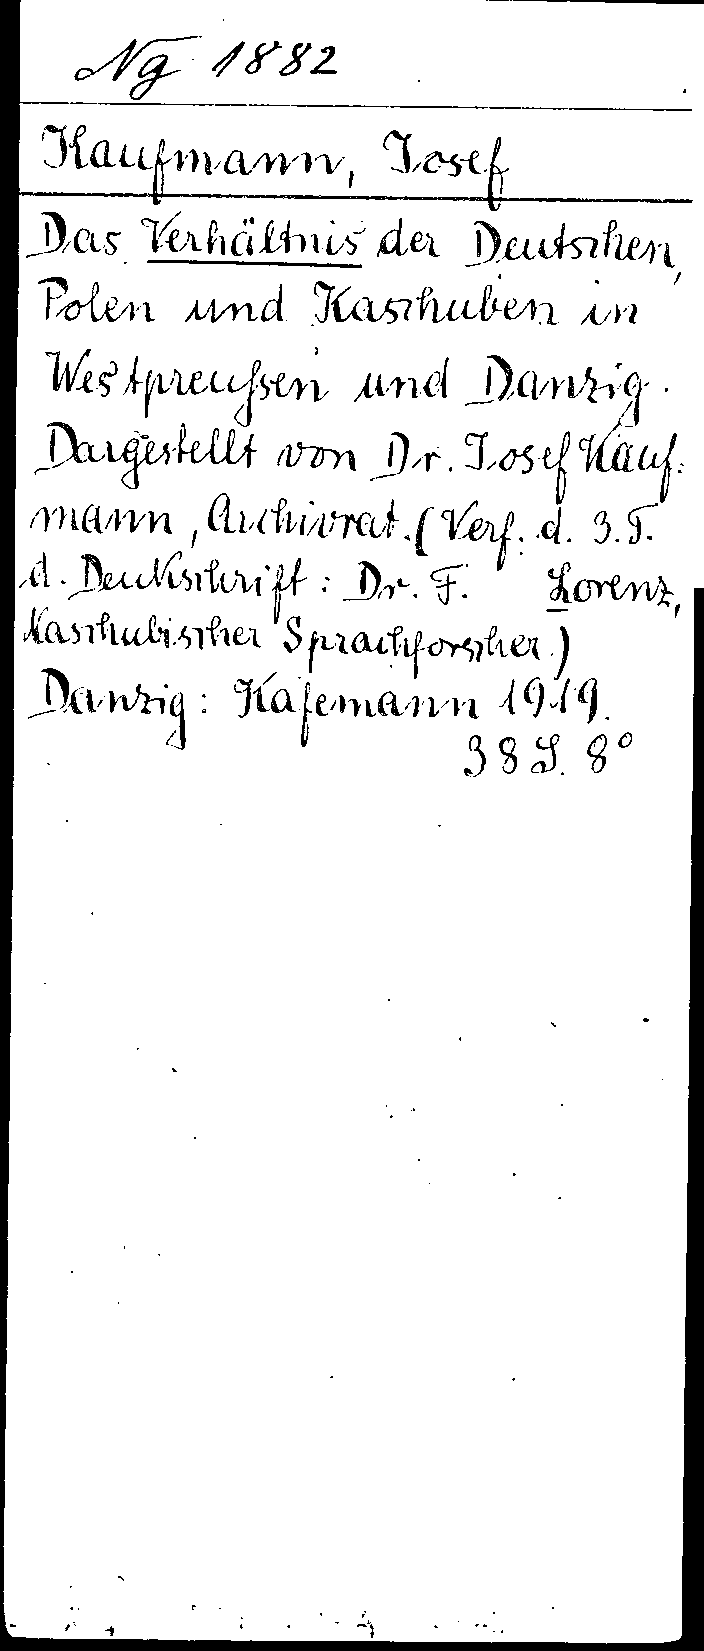 Ng 1882
Kaufmann, Josef
Das Verhältnis der Deutschen,
Polen und Kaschuben in
Westpreußen und Danzig.
Dargestellt von Dr. Josef Kauf-
mann, Archivrat. (Verf. d. 3. T.
d. Denkschrift: Dr. F. Lorenz,
Kaschubischer Sprachforscher.)
Danzig: Kafemann 1919.
38 S. 8°